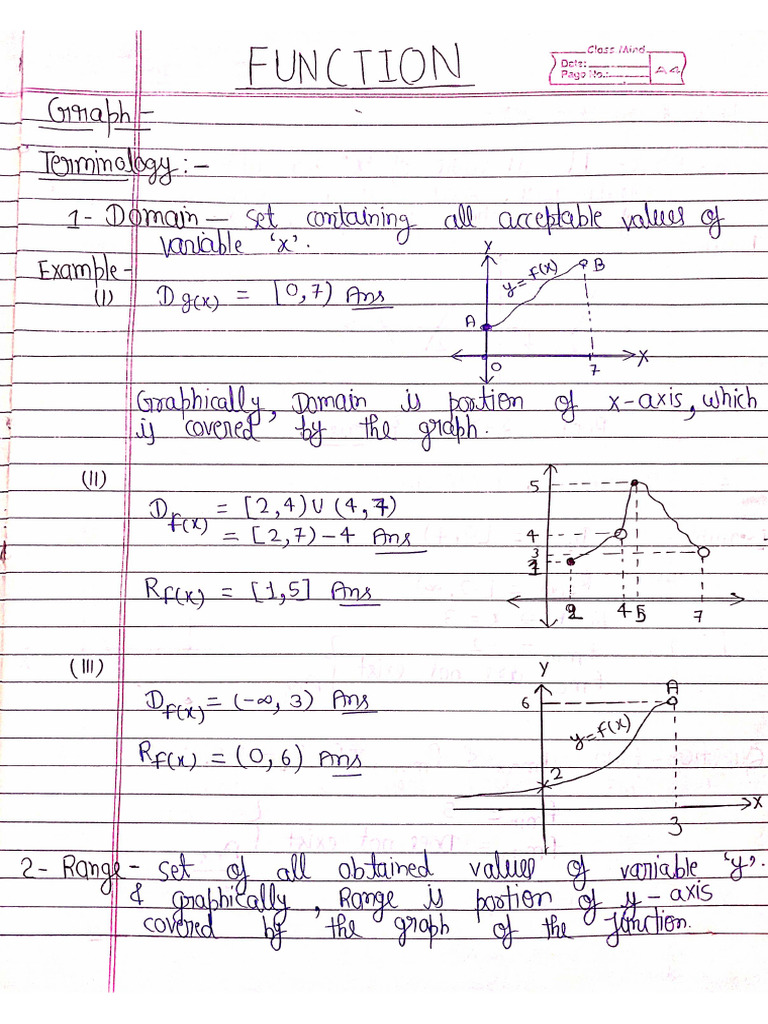 FUNCTION
Class Mind
Date:
Page No.:
Graph-
Terminology:-
1- Domain - set containing all acceptable values of
variable 'x'.
Example-
(I) Dg(x) = [0,7) Ans
Y
y=f(x)
B
A
O
7
X
Graphically, Domain is portion of x-axis, which
is covered by the graph.
(II)
D f(x) = [2,4) U (4,7)
= [2,7) - 4 Ans
R f(x) = [1,5] Ans
5
4
3
2 4 5 7
(III)
D f(x) = (-∞, 3) Ans
R f(x) = (0, 6) Ans
Y
6
A
y=f(x)
2
X
3
2- Range - set of all obtained values of variable 'y'.
& graphically, Range is portion of y-axis
covered by the graph of the function.